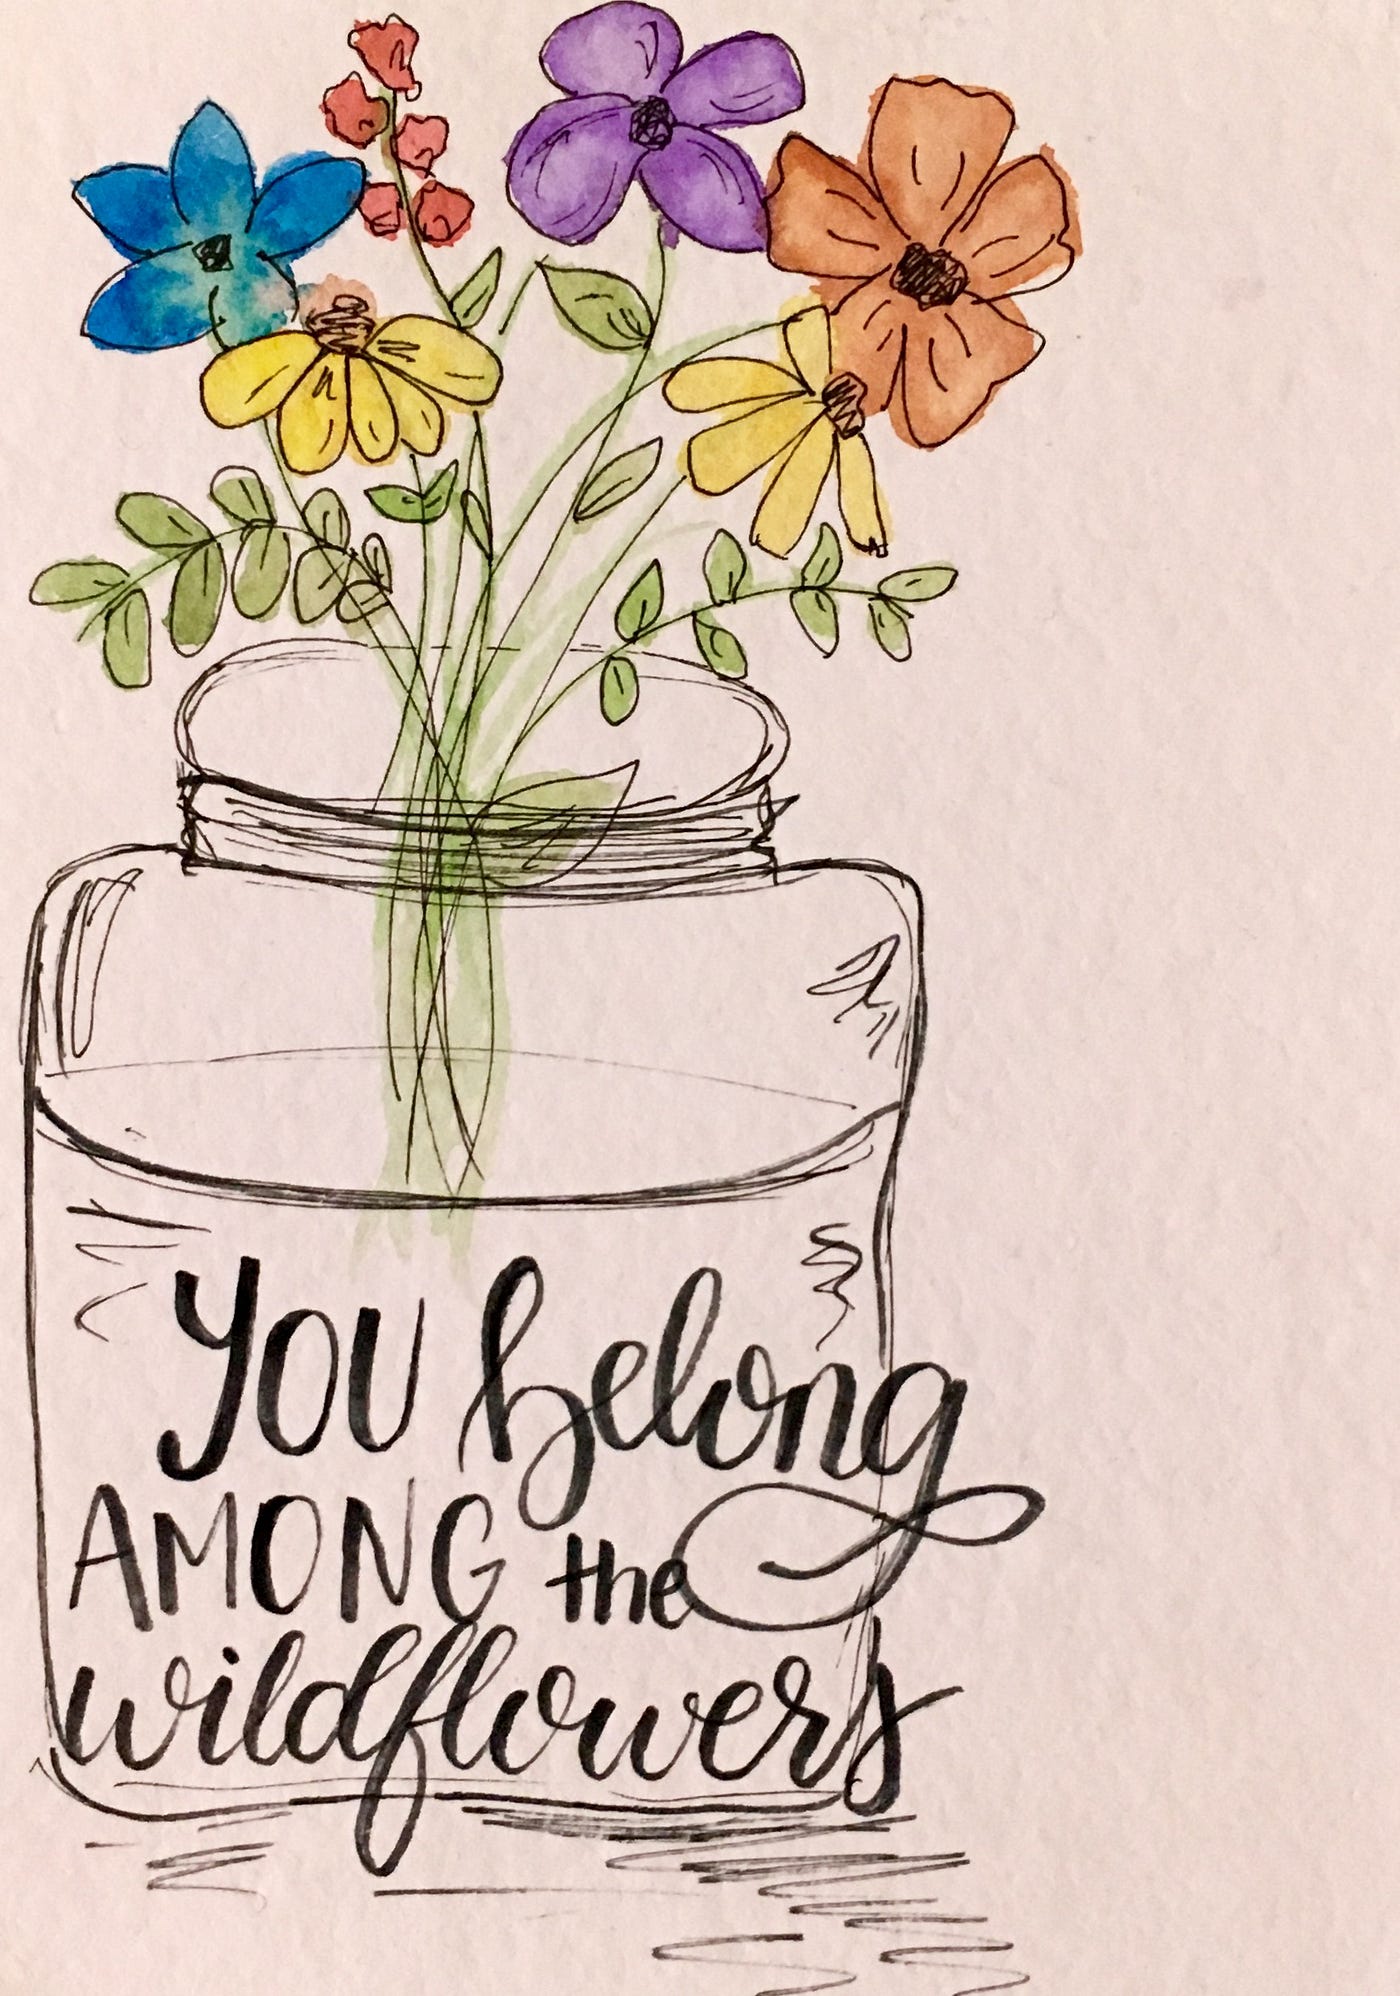 You belong
AMONG the
wildflowers